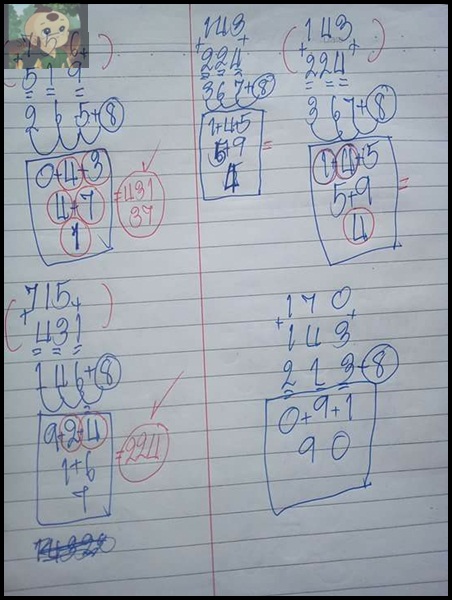 715
519
2 6 5+8
0+4+3
4+7
1
=431
37
143
224
367+8
1+4+5
5+9
4
=
143
224
367+8
1+4+5
5+9
4
=
715
431
146+8
9+2+4
1+6
7
=224
170
143
213+8
0+9+1
9 0